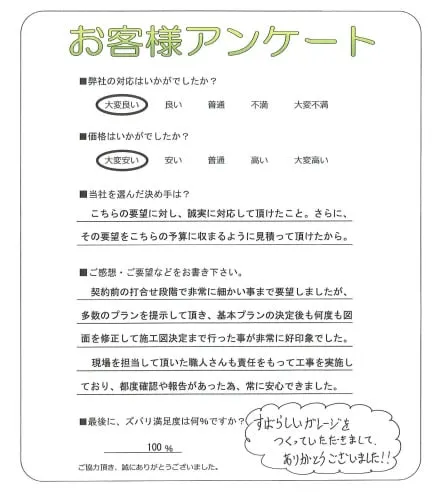 お客様アンケート
■弊社の対応はいかがでしたか？
大変良い 良い 普通 不満 大変不満
■価格はいかがでしたか？
大変安い 安い 普通 高い 大変高い
■当社を選んだ決め手は？
こちらの要望に対し、誠実に対応して頂けたこと。さらに、
その要望をこちらの予算に収まるように見積って頂けたから。
■ご感想・ご要望などをお書き下さい。
契約前の打合せ段階で非常に細かい事まで要望しましたが、
多数のプランを提示して頂き、基本プランの決定後も何度も図
面を修正して施工図決定まで行った事が非常に好印象でした。
現場を担当して頂いた職人さんも責任をもって工事を実施し
ており、都度確認や報告があった為、常に安心できました。
■最後に、ズバリ満足度は何％ですか？
100 ％
ご協力頂き、誠にありがとうございました。
すばらしいガレージを
つくっていただきまして、
ありがとうございました!!